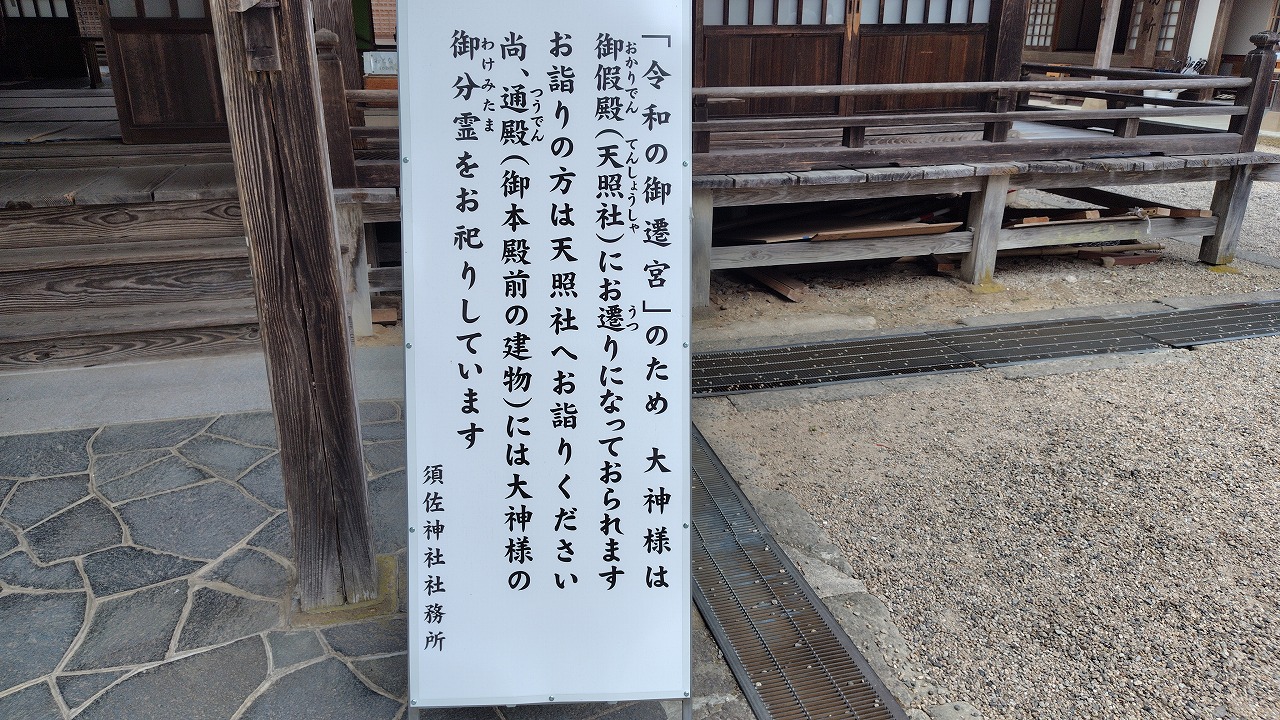 「令和の御遷宮」のため 大神様は
御假殿(天照社)にお遷りになっておられます
お詣りの方は天照社へお詣りください
尚、通殿(御本殿前の建物)には大神様の
御分霊をお祀りしています
須佐神社社務所
おかりでん
てんしょうしゃ
うつ
つうでん
わけみたま